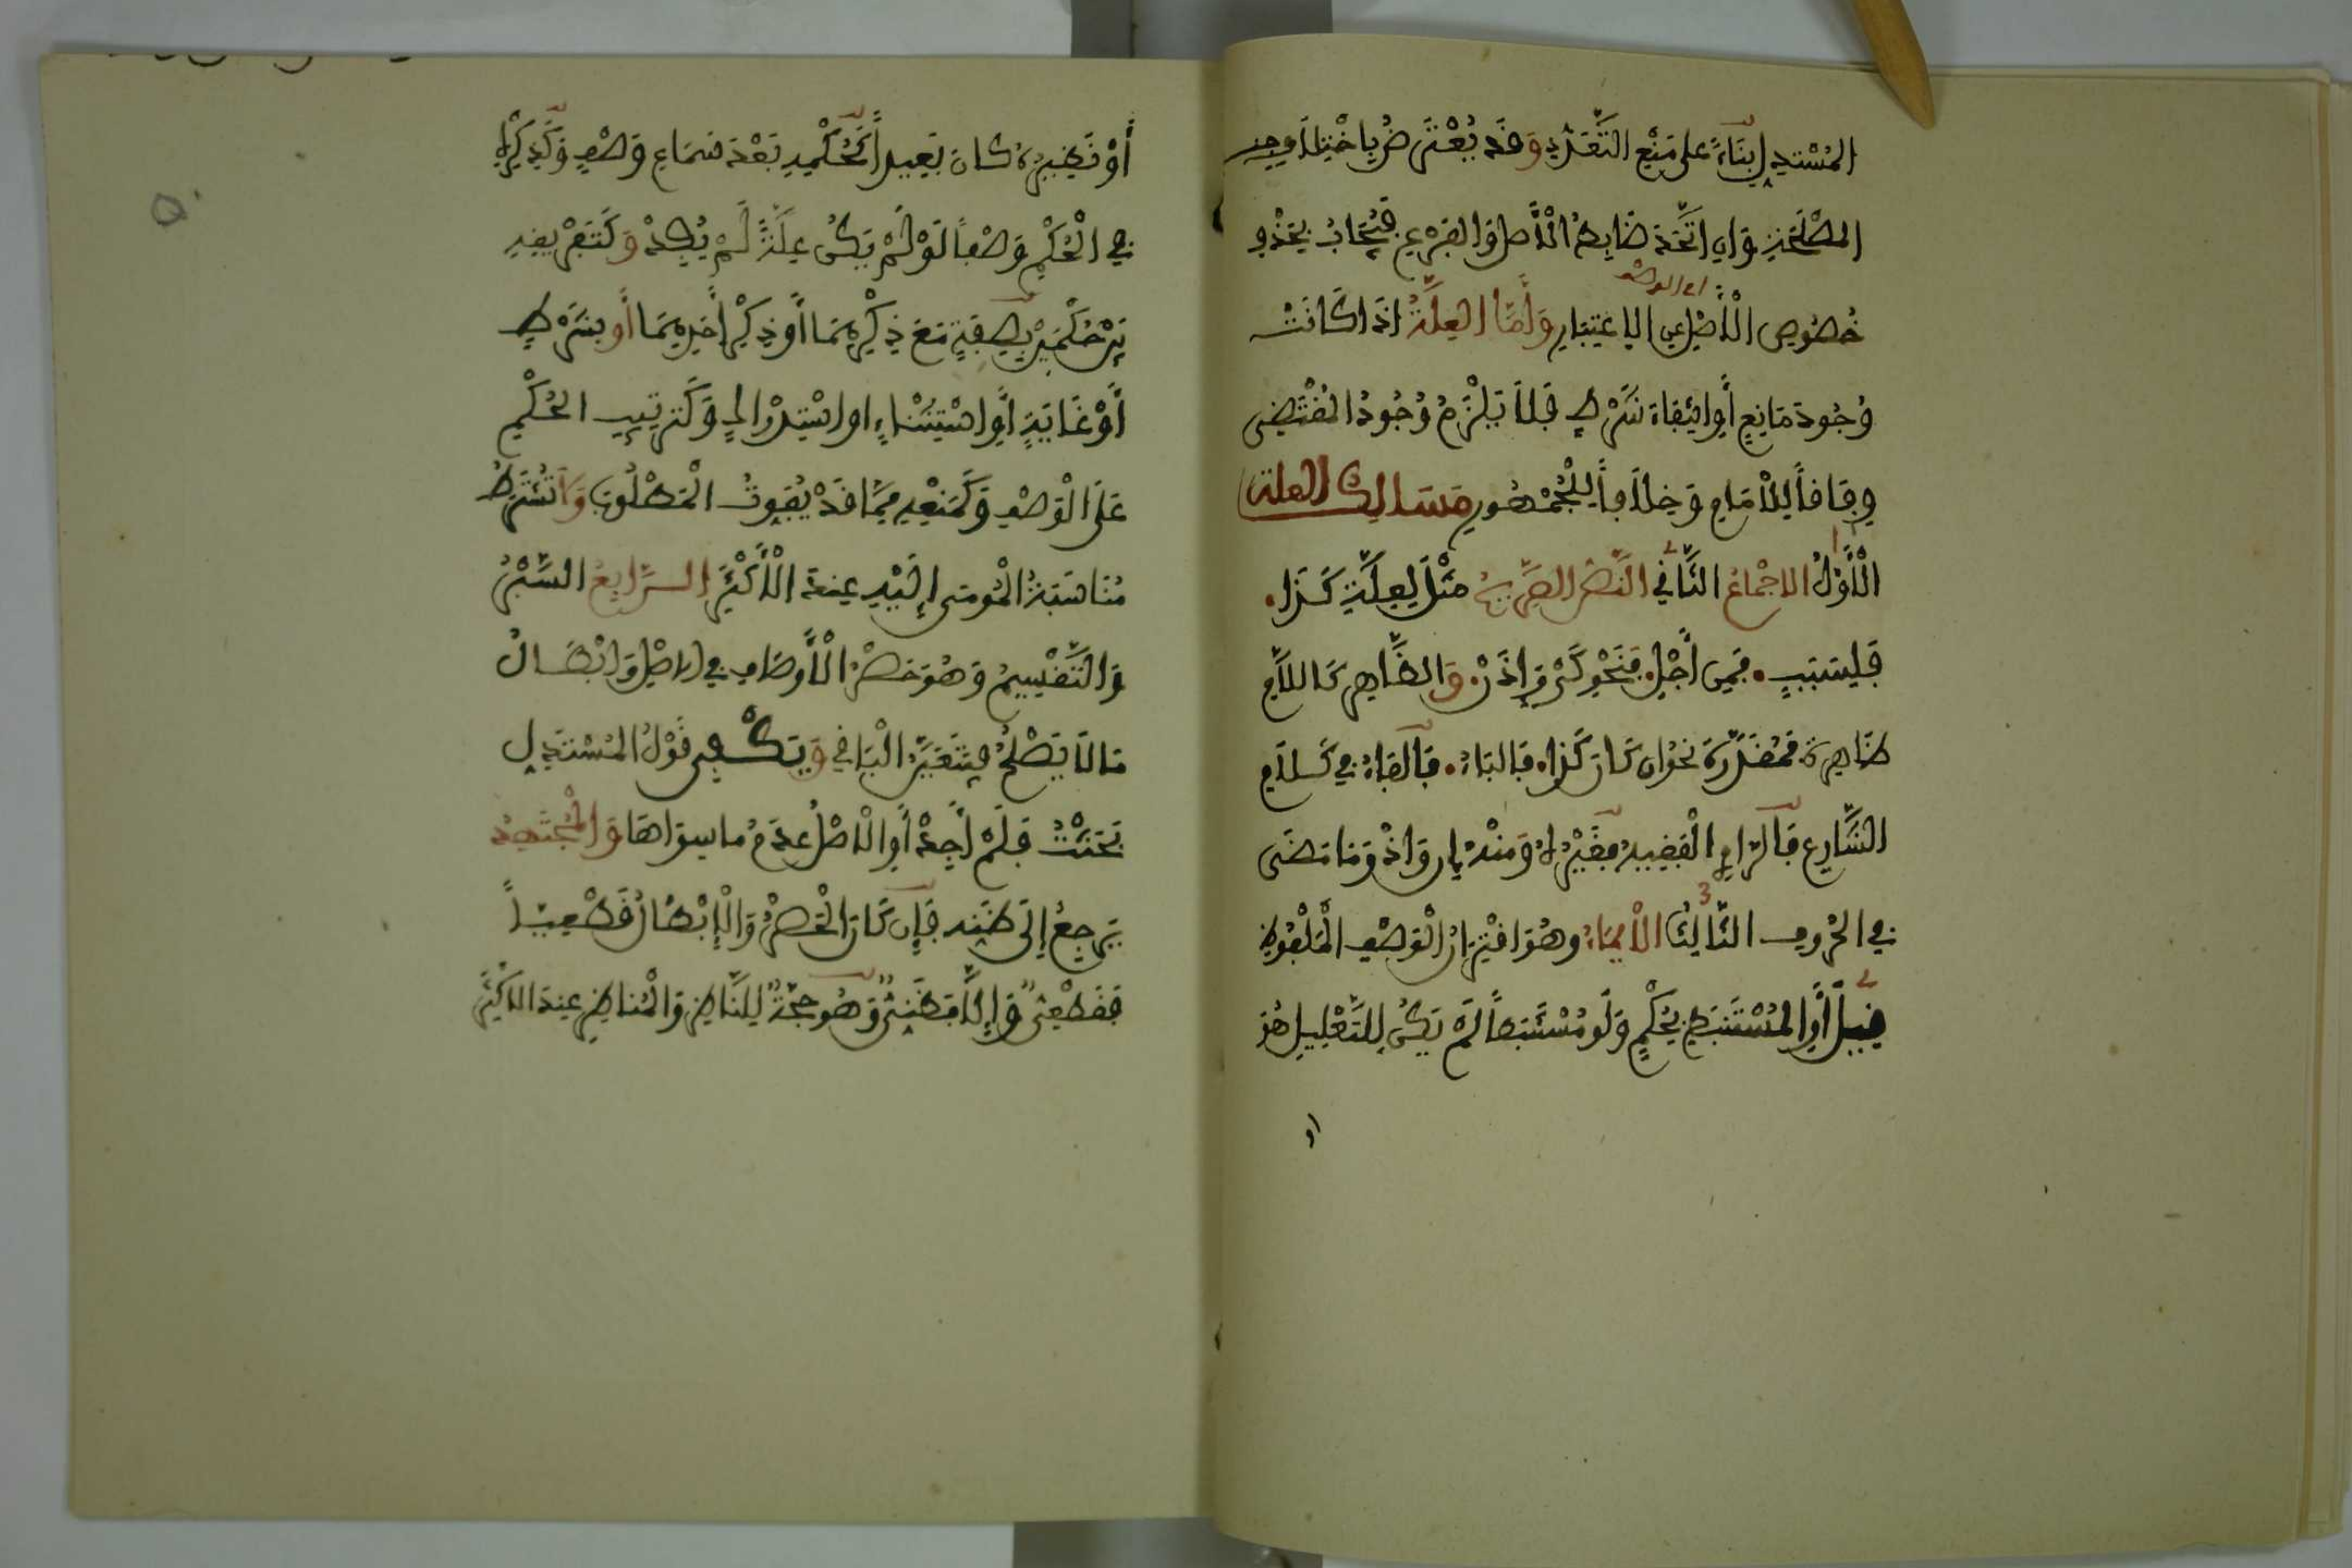 المُسْتَدِلِّ بِنَاءً عَلى مَنْعِ التَّعَدُّدِ وَقَدْ يُعْتَرَضُ بِاخْتِلَافِ جِنْسِ
المَصْلَحَةِ وَإِنِ اتَّحَدَ ضَابِطُ الْأَصْلِ وَالفَرْعِ فَيُجَابُ بِحَذْفِ
خُصُوصِ الْأَصْلِ عَنِ الِاعْتِبَارِ وَأَمَّا العِلَّةُ اذَا كَانَتْ
وُجُودَ مَانِعٍ أَوِ انْتِفَاءَ شَرْطٍ فَلَا يَلْزَمُ وُجُودُ المُقْتَضِى
وِفَاقاً لِلْاِمَامِ وَخِلَافاً لِلْجُمْهُورِ مَسَالِكُ العلة
الْأَوَّلُ الاجْمَاعُ الثَّانِي النَّصُّ الصَّرِيحُ مِثْلَ لِعِلَّةِ كَذَا.
فَلِسَبَبِ. فَمِنْ أَجْلِ. فَنَحْوِ كَيْ وَإِذَنْ. وَالظَّاهِرُ كَاللَّامِ
ظَاهِرَةً فَمُقَدَّرَةً نحْوُ ان كَانَ كَذَا. فَالبَاءُ. فَالفَاءُ فِي كَلَامِ
الشَّارِعِ فَالرَّاوِي الْفَقِيهِ فَغَيْرِهُ وَمِنْهُ إِن وَاذْ وَمَا مَضَى
فِي الحُرُوفِ الثَّالِثُ الْاِيمَاءُ وهُوَ اقْتِرَانُ الْوَصْفِ المَلْفُوظِ
قِيلَ أَوِ المُسْتَنْبَطِ بِحُكْمٍ وَلَو مُسْتَنْبَطاً لَوْ لَمْ يَكُنْ لِلتَّعْلِيلِ هُوَ
او
أَوْ نَظِيرُهُ كَانَ بَعِيداً كَحُكْمِهِ بَعْدَ سَمَاعِ وَصْفٍ وَكَذِكْرِهِ
فِي الْحُكْمِ وَصْفاً لَوْ لَمْ يَكُنْ عِلَّةً لَمْ يُفِدْ وَكَتَفْرِيقِهِ
بَيْنَ حُكْمَيْنِ بِصِفَةٍ مَعَ ذِكْرِهِمَا أَوْ ذِكْرِ أَحَدِهِمَا أَو بِشَرْطٍ
أَوْ غَايَةٍ أَوِ اسْتِثْنَاءٍ اوِ اسْتِدْرَاكٍ وَكَتَرْتِيبِ الحُكْمِ
عَلَى الْوَصْفِ وَكَمَنْعِهِ مِمَّا قَدْ يُفَوِّتُ الْمَطْلُوبَ وَلَا تُشْتَرَطُ
مُنَاسَبَةُ الْمُومَى إِلَيْهِ عِنْدَ الْأَكْثَرِ الرَّابِعُ السَّبْرُ
وَالتَّقْسِيمُ وَهُوَ حَصْرُ الْأَوْصَافِ فِي الاصْلِ وَإِبْطَالُ
مَا لَا يَصْلُحُ فَيَتَعَيَّنُ الْبَاقِي وَيَكْفِي قَوْلُ المُسْتَدِلِّ
بَحَثْتُ فَلَمْ أَجِدْ أَوِ الْاصْلُ عَدَمُ مَا سِوَاهَا وَالْمُجْتَهِدُ
يَرْجِعُ إِلَى ظَنِّهِ فَإِن كَانَ الْحَصْرُ وَالْإِبْطَالُ قَطْعِيّاً
فَقَطْعِيٌّ وَإِلَّا فَظَنِّيٌّ وَهُو حُجَّةٌ لِلنَّاظِرِ وَالْمُنَاظِرِ عِنْدَ الاكْثَرِ